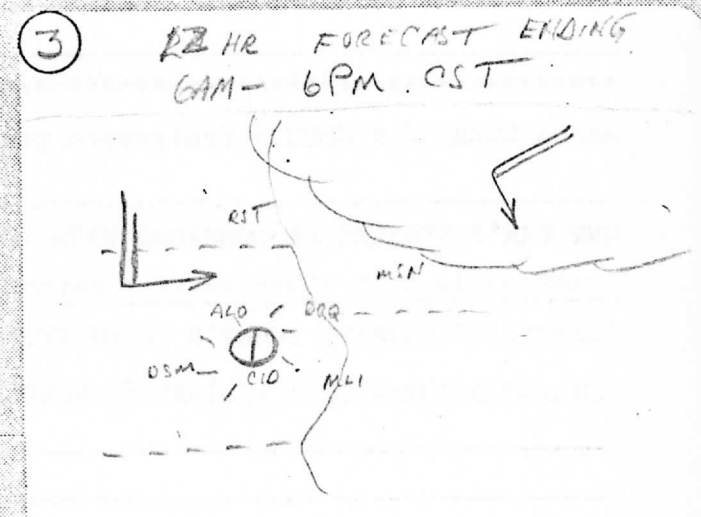 3
12 HR FORECAST ENDING
6AM - 6PM CST
RST
MSN
ALO DBQ
DSM CID MLI